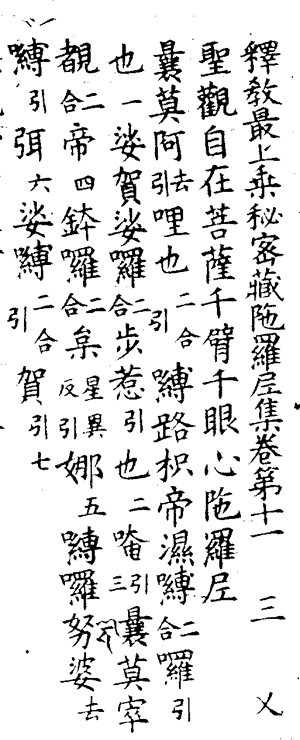 釋教最上乘秘密藏陁羅尼集卷第十一 三 乂
聖觀自在菩薩千臂千眼心陁羅尼
曩莫阿去引哩也二合引嚩路枳帝濕嚩二合羅引
也一娑賀娑囉二合步惹引也二唵引三曩莫宰
覩二合帝四鉢囉二合矣星異反引娜五嚩囉努婆去
嚩引弭六娑嚩二合引賀引七